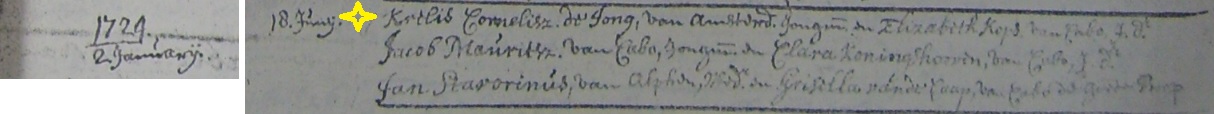 1729.
2 January.
18. Juny. Krelis Cornelisz. de Jong, van Amsterd. Jongm. en Elizabeth Kops van Cabo, J. d.
Jacob Mauritsz. van Cabo, Jongm. en Clara Koningshoven, van Cabo, J. d.
Jan Stavorinus, van Alphen, Wed. en Grisella van de Caap, van Cabo de goede Hoop